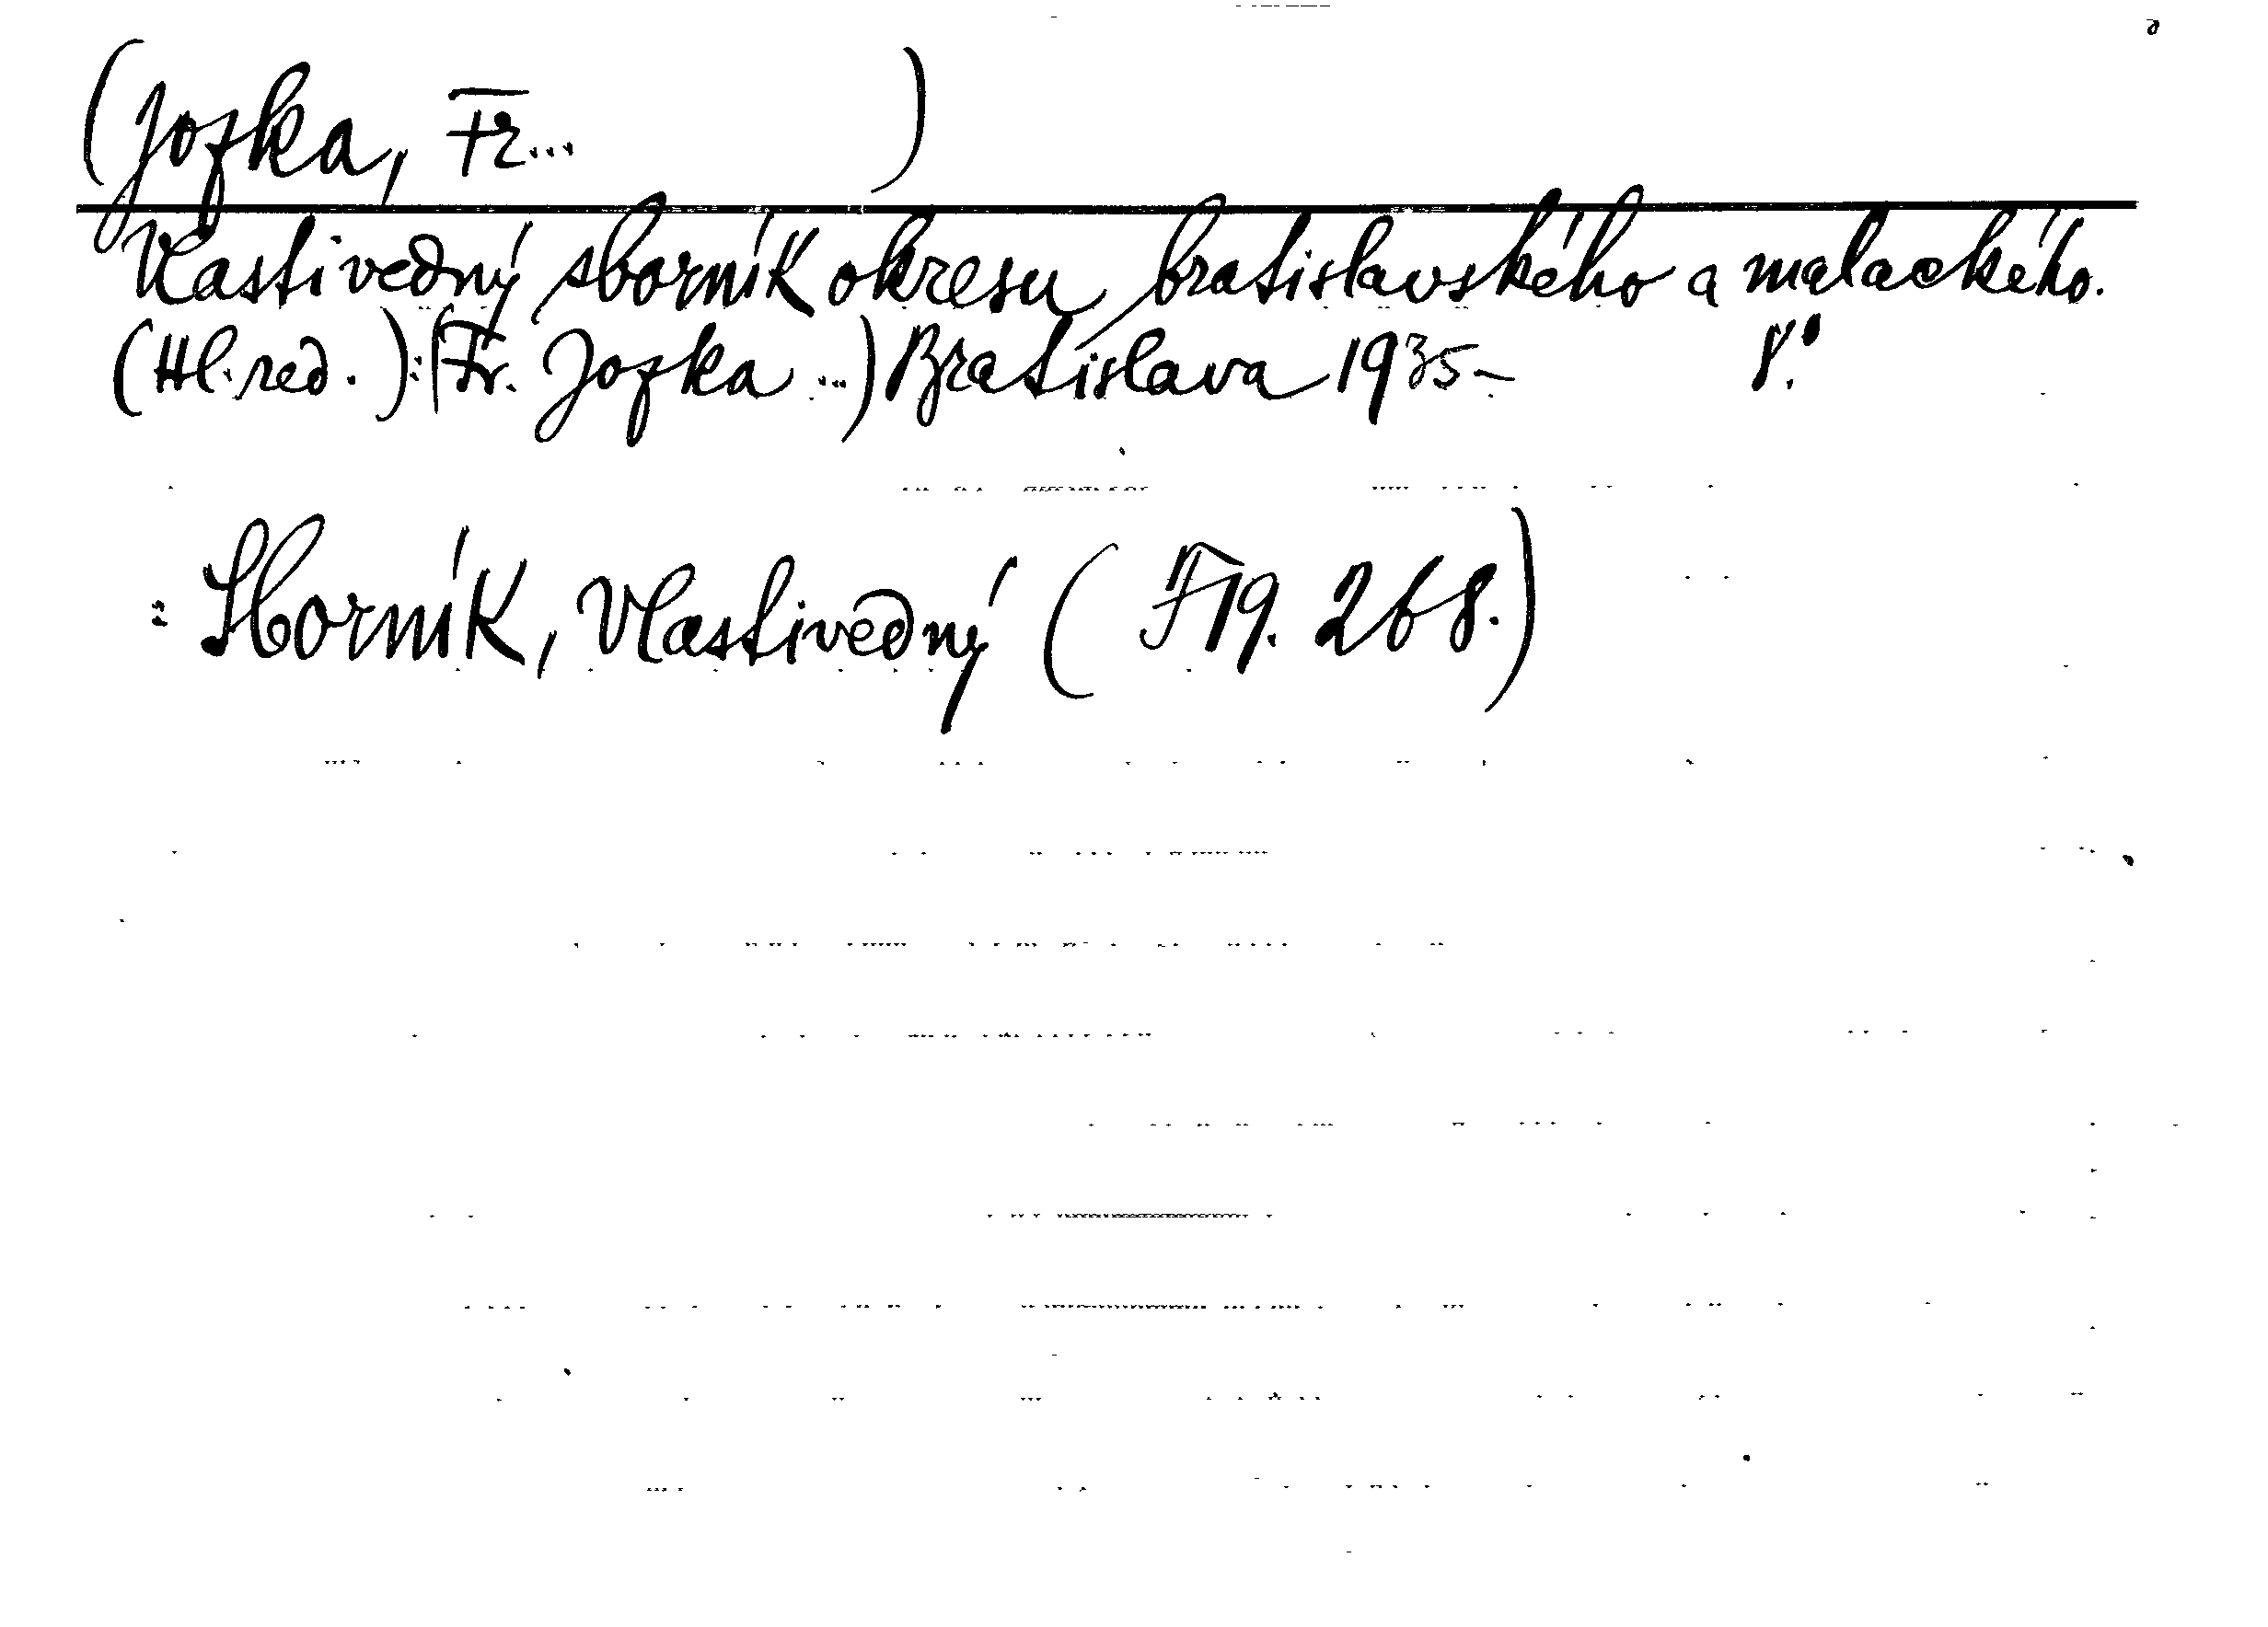 (Jozka, Fr... )
Vlastivedný sborník okresu bratislavského a malackého.
(Hl. red.): (Fr. Jozka ...) Bratislava 1935- 8.°
: Sborník, Vlastivedný ( F 19. 268.)